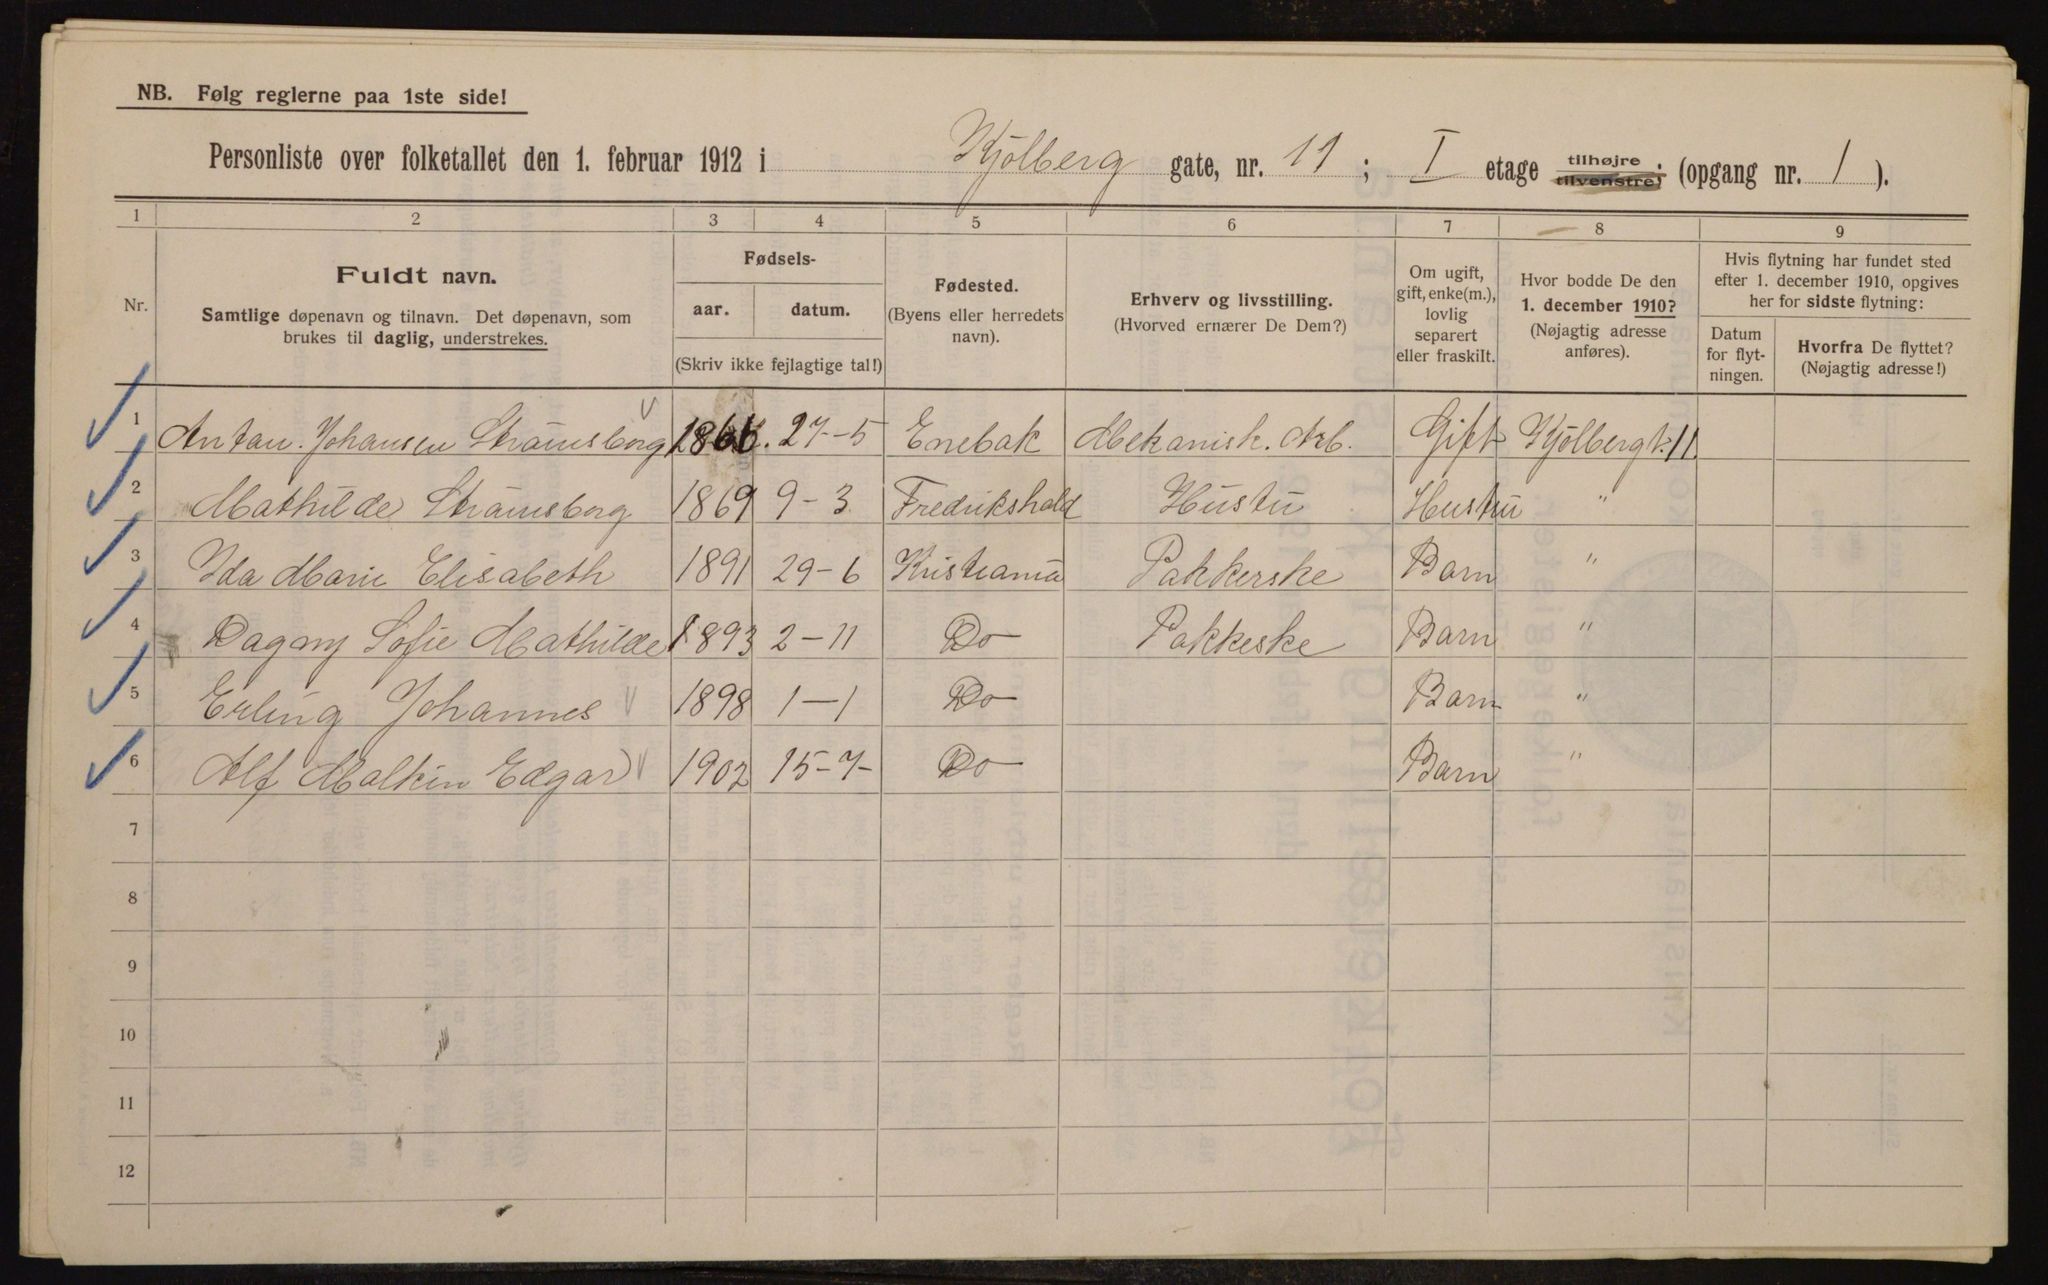 NB. Følg reglerne paa 1ste side!
Personliste over folketallet den 1. februar 1912 i Kjölberg gate, nr. 11 ; I etage tilhøjre tilvenstre; (opgang nr. 1 ).
1 2 3 4 5 6 7 8 9
Nr.
Fuldt navn.
Samtlige døpenavn og tilnavn. Det døpenavn, som
brukes til daglig, understrekes.
Fødsels-
aar. datum.
(Skriv ikke fejlagtige tal!)
Fødested.
(Byens eller herredets
navn).
Erhverv og livsstilling.
(Hvorved ernærer De Dem?)
Om ugift,
gift, enke(m.),
lovlig
separert
eller fraskilt.
Hvor bodde De den
1. december 1910?
(Nøjagtig adresse
anføres).
Hvis flytning har fundet sted
efter 1. december 1910, opgives
her for sidste flytning:
Datum
for flyt-
ningen.
Hvorfra De flyttet?
(Nøjagtig adresse!)
1 Antan. Johansen Strömsborg 1866. 27-5 Enebak Mekanisk. Arb. Gift Kjölbergt. 11.
2 Mathilde Strömsborg 1869 9-3 Fredrikshald Hustu Hustru "
3 Ida Marie Elisabeth 1891 29-6 Kristiania Pakkerske Barn "
4 Dagny Sofie Mathilde 1893 2-11 Do Pakkeske Barn "
5 Erling Johannes " 1898 1-1 Do Barn "
6 Alf Malkin Edgar " 1902 15-7- Do Barn "
7
8
9
10
11
12